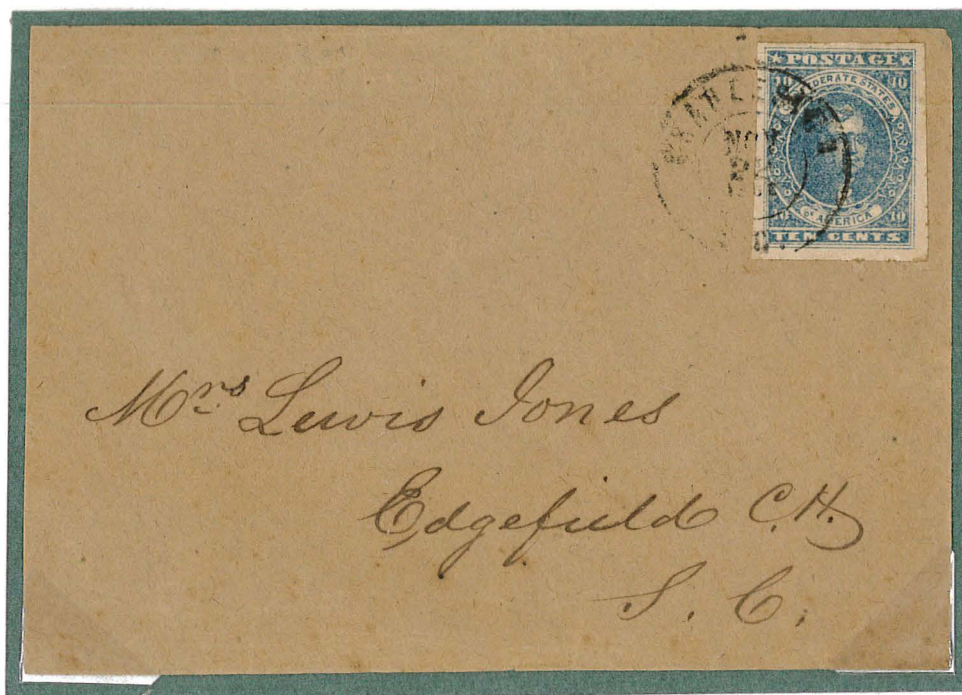 POSTAGE
10 CONFEDERATE STATES 10
10 OF AMERICA 10
TEN CENTS
CHARLESTON
NOV
S.C.
Mrs Lewis Jones
Edgefield C.H.
S. C.